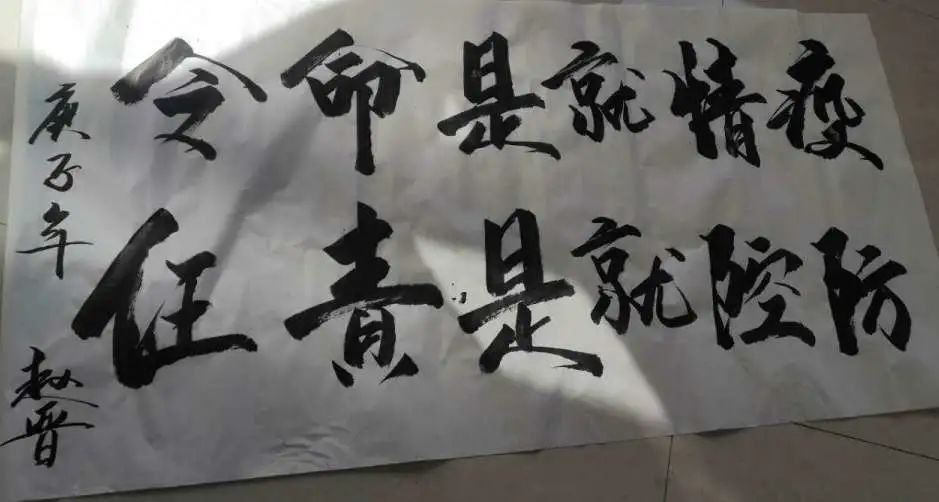 疫情就是命令
防控就是责任
庚子年
赵晋